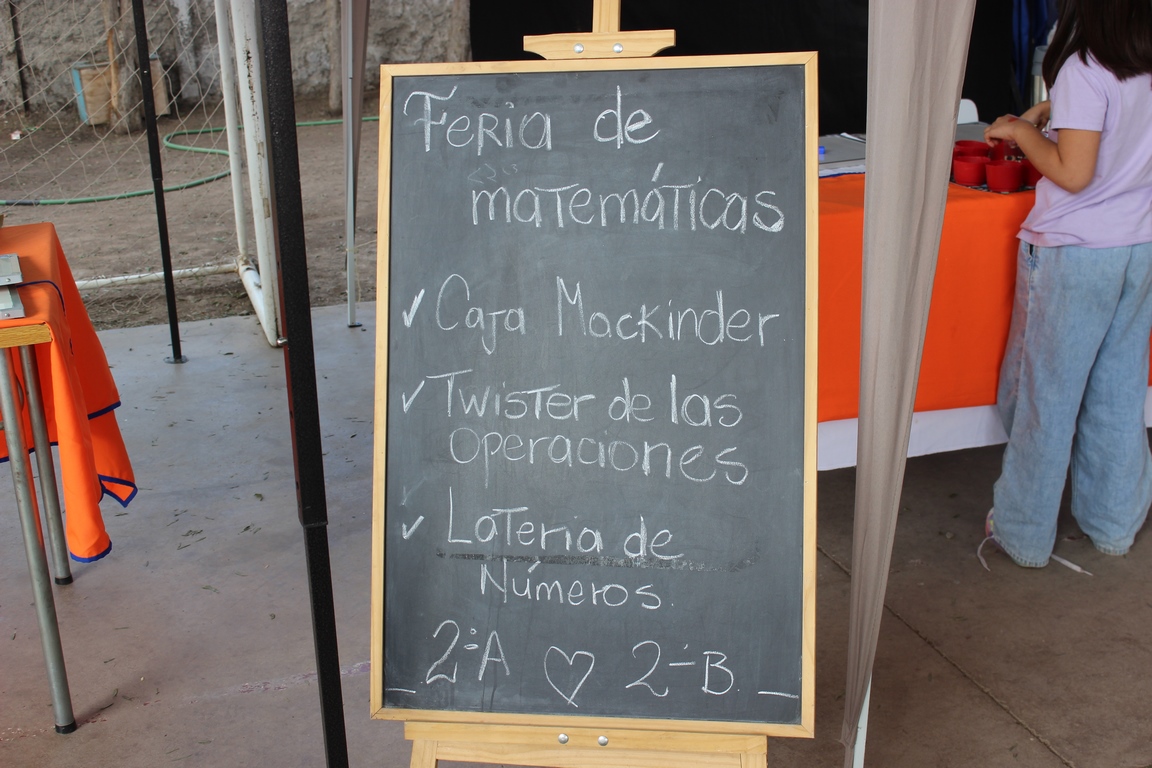 Feria de
matemáticas
✓ Caja Mackinder
✓ Twister de las
operaciones
✓ Lotería de
Números.
2°A ♡ 2°B